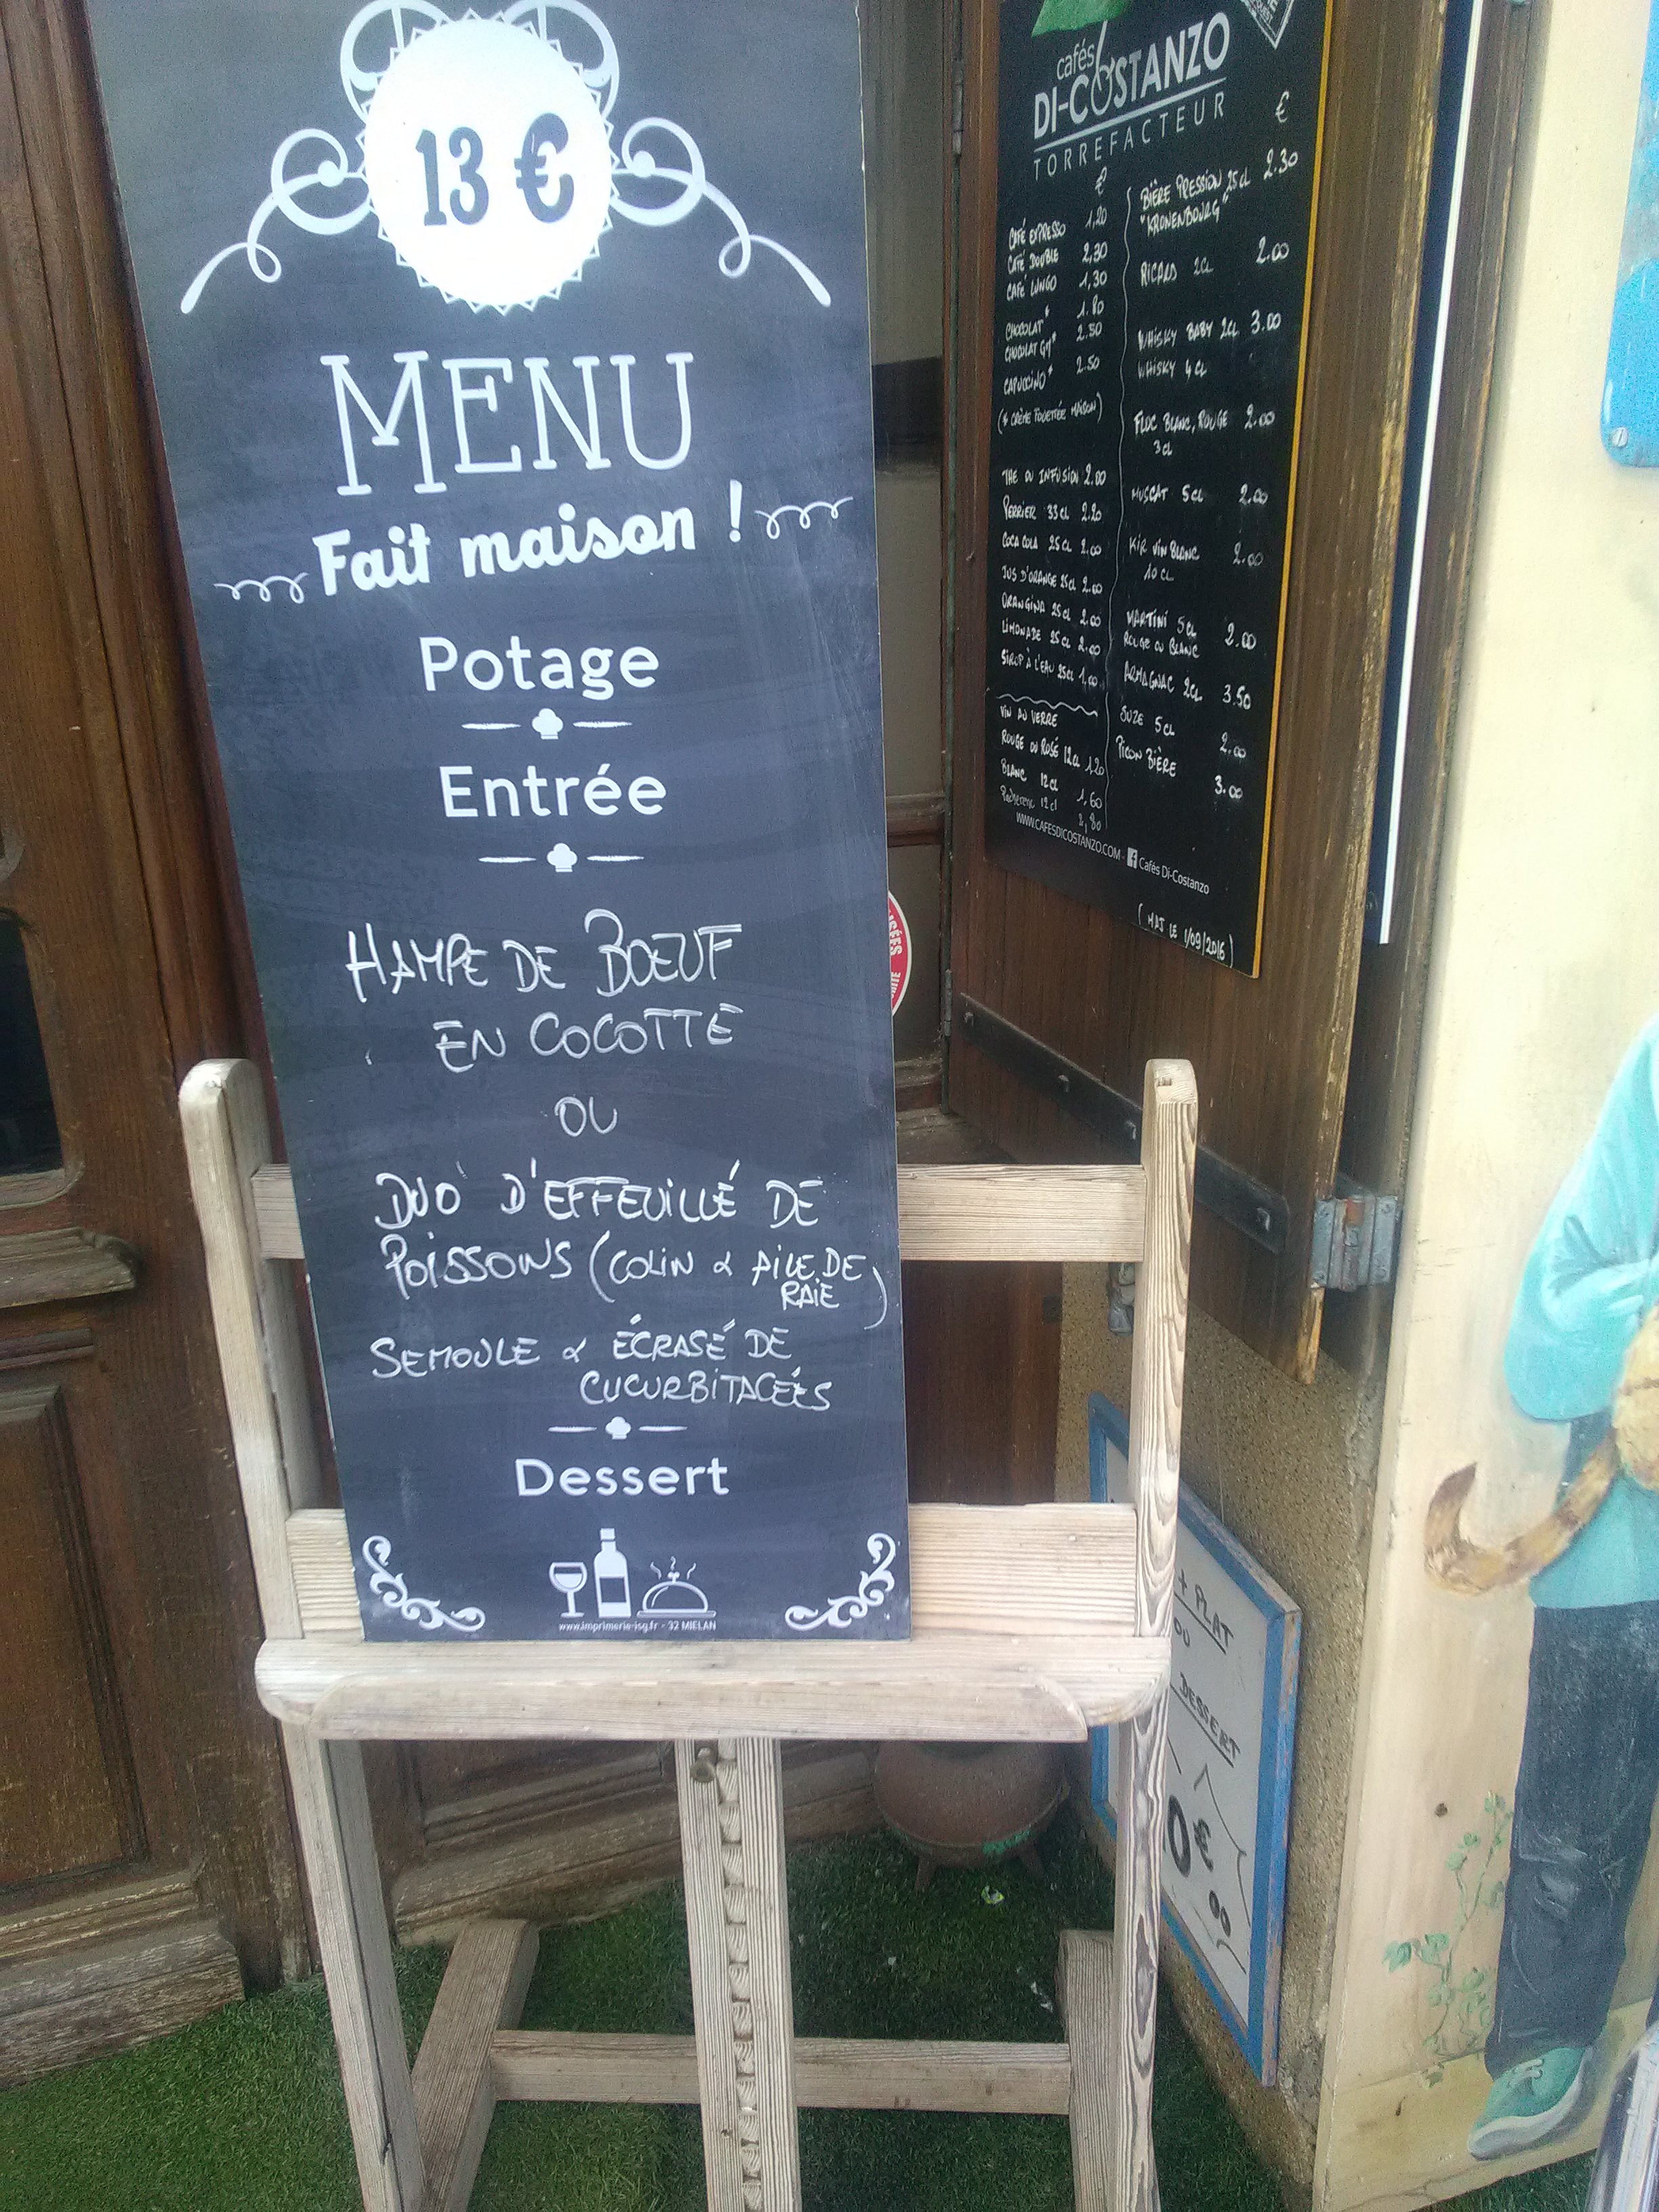 13 €
MENU
Fait maison !
Potage
Entrée
HAMPE DE BOEUF
EN COCOTTE
OU
DUO D'EFFEUILLÉ DE
POISSONS (COLIN & AILE DE
RAIE)
SEMOULE & ÉCRASÉ DE
CUCURBITACÉES
Dessert
www.imprimerie-isg.fr - 32 MIELAN
cafés
DI-COSTANZO
TORREFACTEUR
€
CAFÉ EXPRESSO 1,20
CAFÉ DOUBLE 2,30
CAFE LUNGO 1,30
CHOCOLAT* 1.80
CHOCOLAT GT* 2.50
CAPUCCINO* 2.50
(* CRÈME FOUETTÉE MAISON)
THE OU INFUSION 2.00
PERRIER 33CL 2.20
COCA COLA 25CL 2.00
JUS D'ORANGE 25CL 2.00
ORANGINA 25CL 2.00
LIMONADE 25CL 2.00
SIROP À L'EAU 25CL 1.00
VIN AU VERRE
ROUGE OU ROSÉ 12CL 1,20
BLANC 12CL 1,60
12cl
€
BIÈRE PRESSION 25CL 2.30
"KRONENBOURG"
RICARD 2CL 2.00
WHISKY BABY 2CL 3.00
WHISKY 4CL
FLOC BLANC, ROUGE 2.00
3CL
MUSCAT 5CL 2.00
KIR VIN BLANC 2.00
10CL
MARTINI 5CL 2.00
ROUGE OU BLANC
ARMAGNAC 2CL 3.50
SUZE 5CL 2.00
PICON BIÈRE 3.00
WWW.CAFESDICOSTANZO.COM - f Cafés Di-Costanzo
(MAJ LE 1/09/2016)
+ PLAT
OU
DESSERT
0€
00